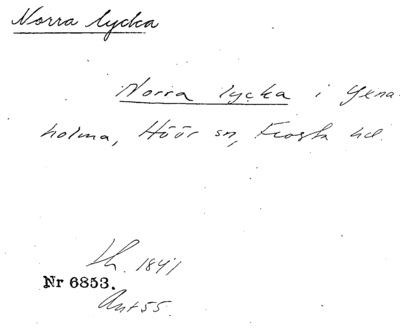 Norra lycka
Norra lycka i Yxna-
holma, Höör sn, Frosta hd.
Lh. 1841
Nr 6853.
Ant 55.